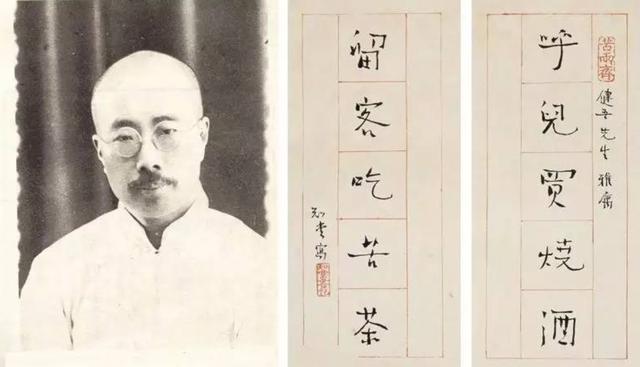 苦雨齋
健吾先生雅屬
呼兒買燒酒
留客吃苦茶
知堂寫